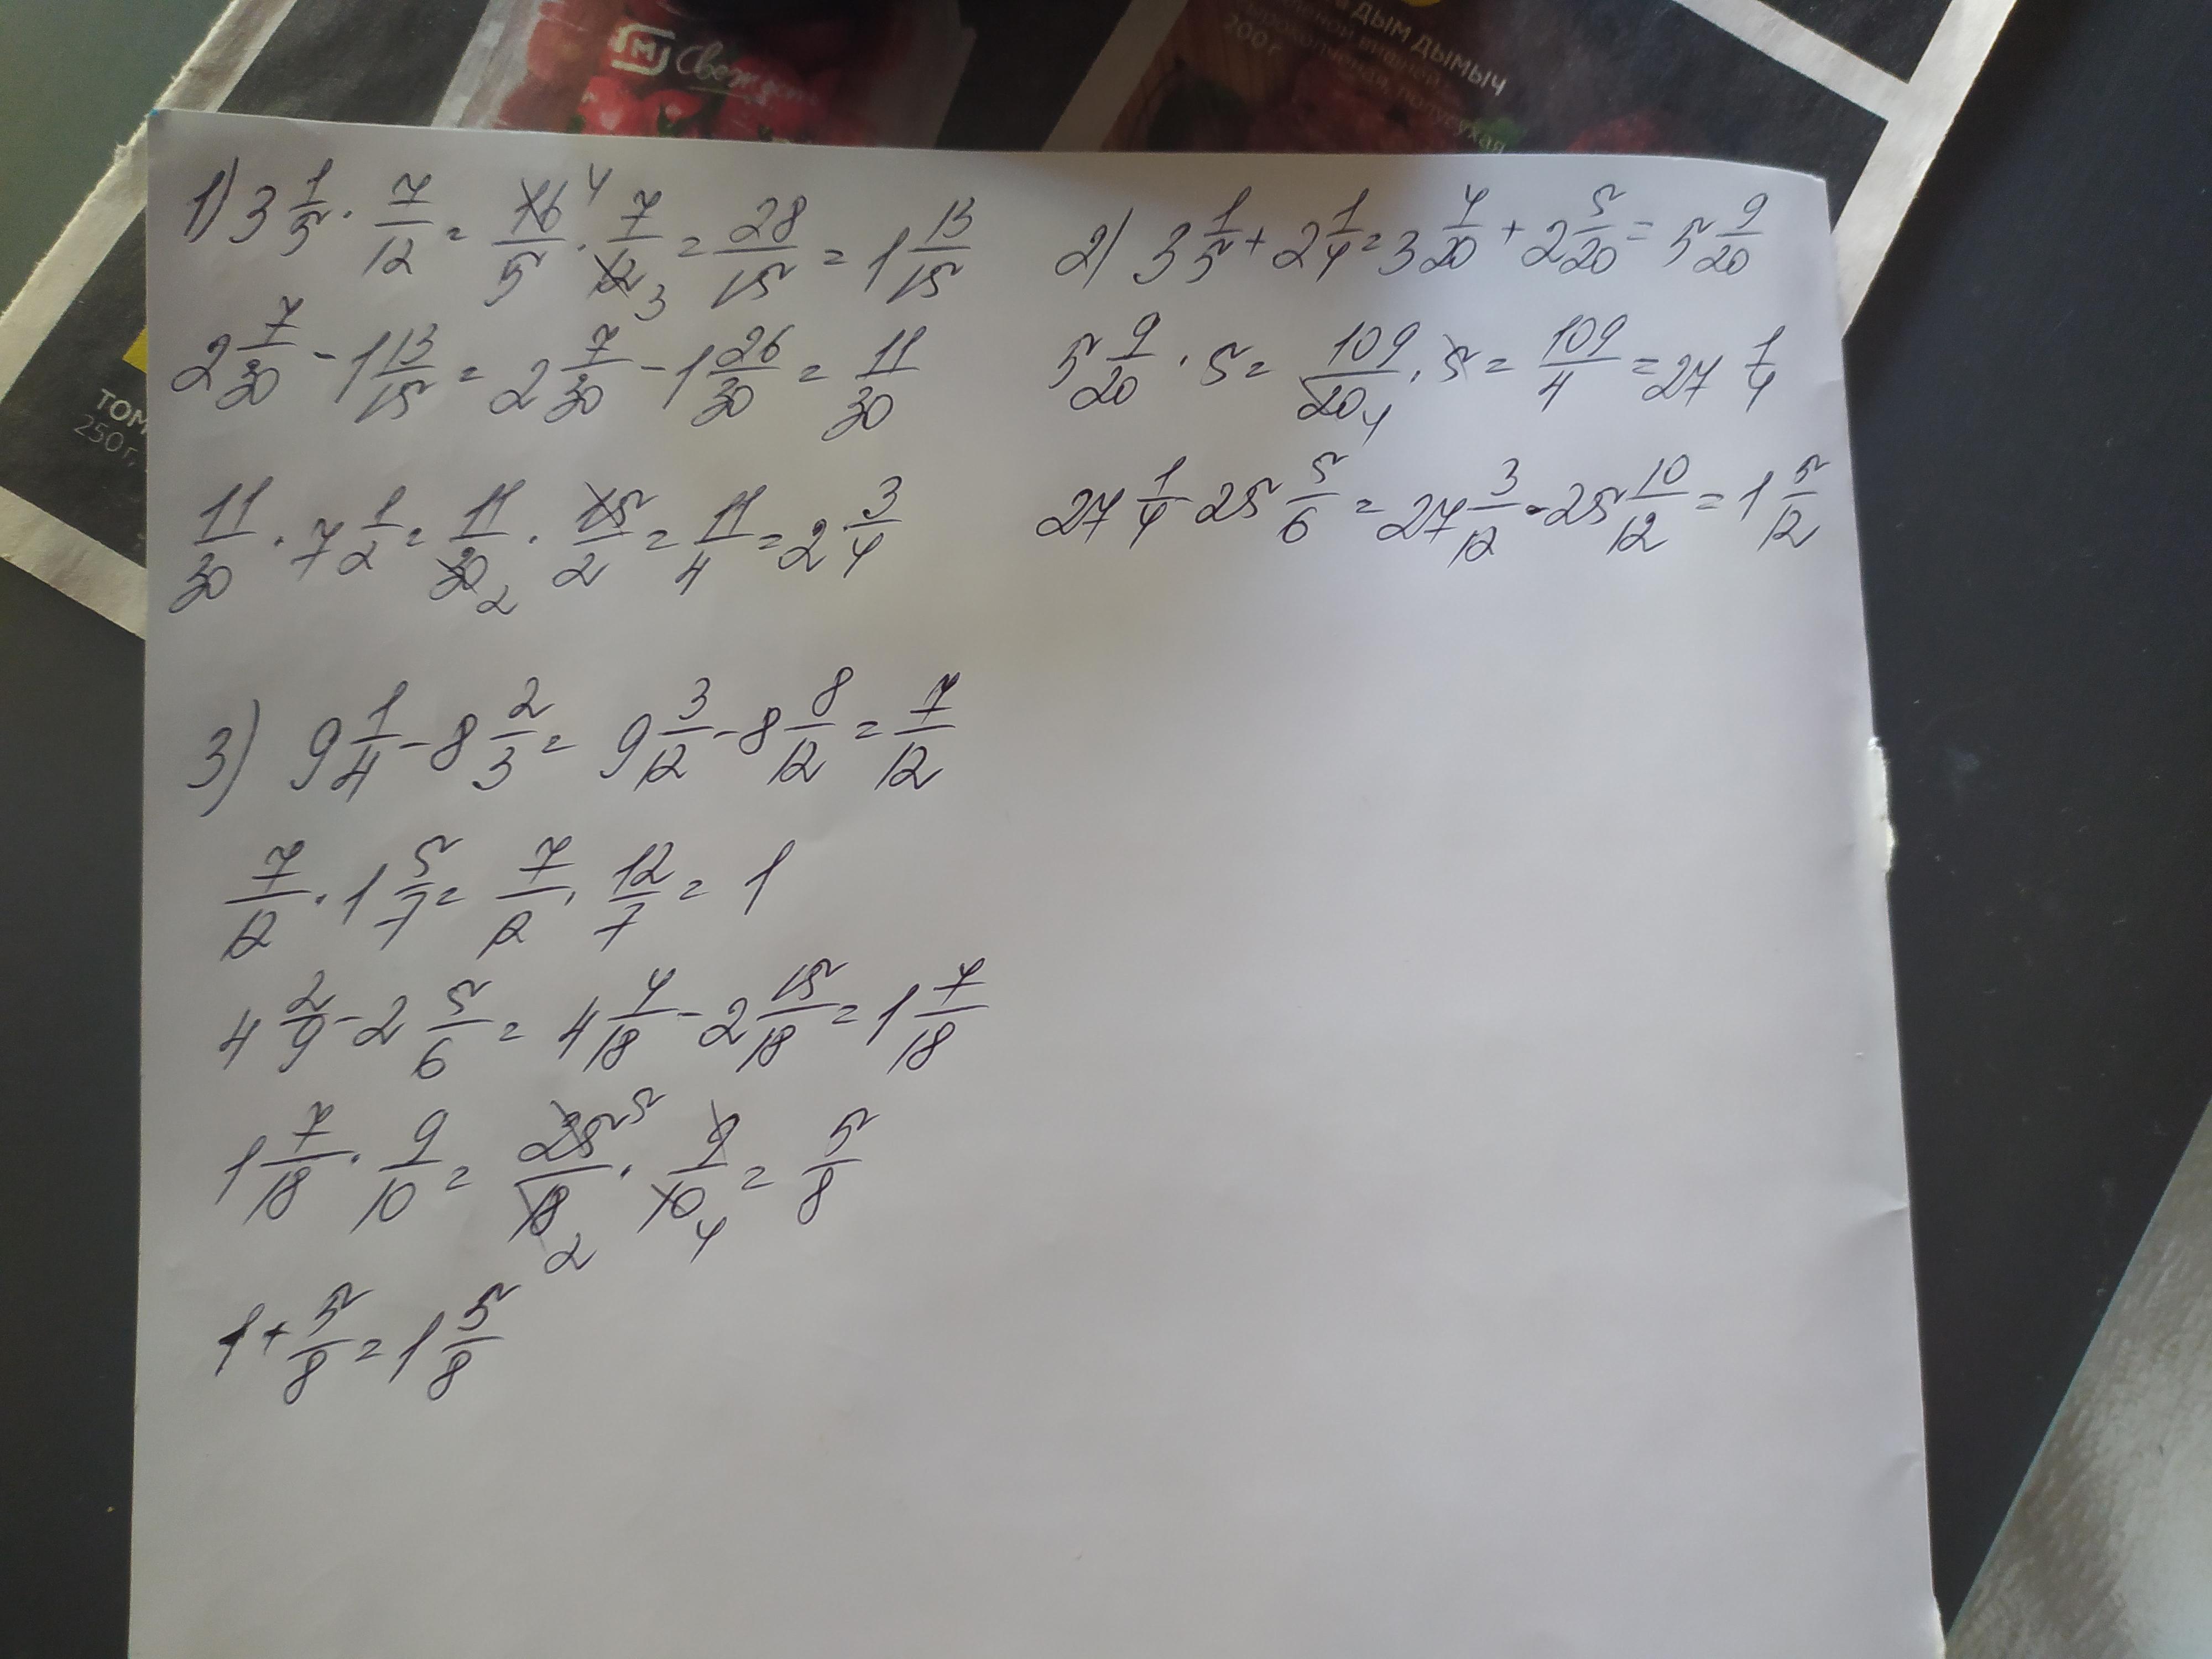 М Свеж
ДЫМ ДЫМЫЧ
200 г
ТОМ
250 г,
1) 3 1/5 · 7/12 = 16/5 4 · 7/12 3 = 28/15 = 1 13/15
2 7/30 - 1 13/15 = 2 7/30 - 1 26/30 = 11/30
11/30 · 7 1/2 = 11/30 2 · 15/2 = 11/4 = 2 3/4
2) 3 1/5 + 2 1/4 = 3 4/20 + 2 5/20 = 5 9/20
5 9/20 · 5 = 109/20 4 · 5 = 109/4 = 27 1/4
27 1/4 - 25 5/6 = 27 3/12 - 25 10/12 = 1 5/12
3) 9 1/4 - 8 2/3 = 9 3/12 - 8 8/12 = 7/12
7/12 · 1 5/7 = 7/12 · 12/7 = 1
4 2/9 - 2 5/6 = 4 4/18 - 2 15/18 = 1 7/18
1 7/18 · 9/10 = 25 5/18 2 · 9/10 4 = 5/8
1 + 5/8 = 1 5/8